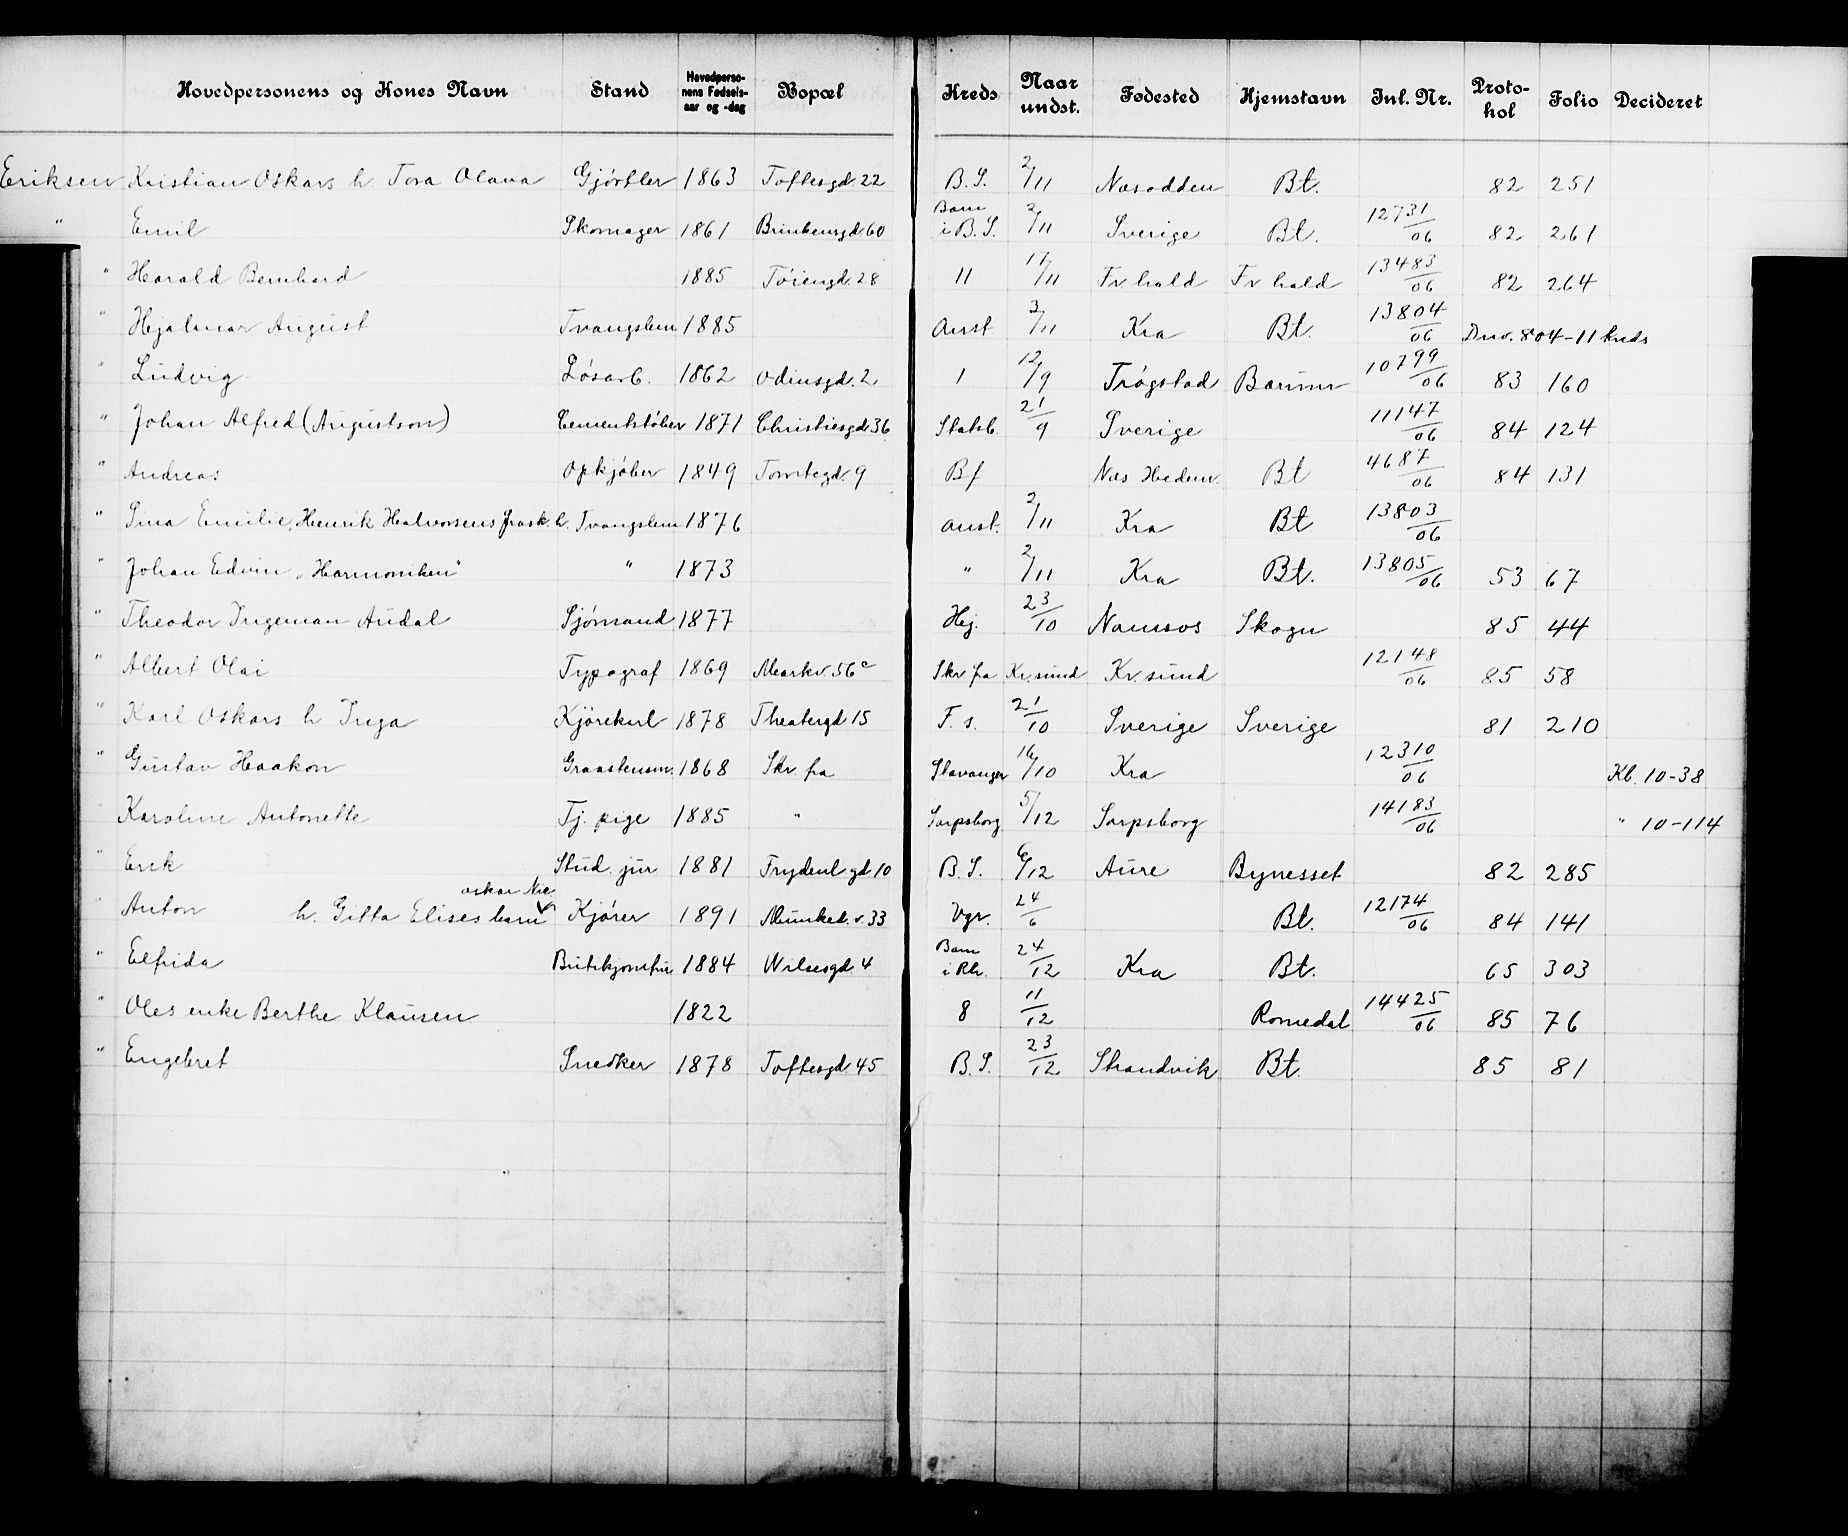 Hovedpersonens og Kones Navn Stand Hovedpersonens Fødselsaar og -dag Bopæl Kreds Naar undst. Fødested Hjemstavn Inl. Nr. Protokol Folio Decideret
Eriksen Kristian Oskars h. Tora Olava Gjørtler 1863 Toftesgd. 22 B. S. 2/11 Næsodden Bt. 82 251
" Emil Skomager 1861 Brinkensgd 60 Barn i B. S. 2/11 Sverige Bt. 12731/06 82 261
" Harald Bernhard 1885 Tøiengd. 28 11 17/11 Fr. hald Fr hald 13483/06 82 264
" Hjalmar August Tvangslem 1885 Anst 2/11 Kra Bt. 13804/06 Duv. 804-11 kreds
" Ludvig Løsarb. 1862 Odinsgd. 2 1 12/9 Trøgstad Bærum 10799/06 83 160
" Johan Alfred (Augustson) Cementstøber 1871 Christiesgd 36 Statsb. 21/9 Sverige 11147/06 84 124
" Andreas Opkjøber 1849 Tomtegd. 9 Bf Næs Hedem. Bt 4687/06 84 131
" Sina Emilie, Henrik Halvorsens frask. h. Tvangslem 1876 Anst. 2/11 Kra Bt 13803/06
" Johan Edvin "Harmoniken" " 1873 " 2/11 Kra Bt. 13805/06 53 67
" Theodor Ingeman Audal Sjømand 1877 Hej. 23/10 Namsos Skogn 85 44
" Albert Olai Typograf 1869 Markv. 56c Skr. fra Kr. sund Kr. sund 12148/06 85 58
" Karl Oskars h Inga Kjørekarl 1878 Theatergd 15 F. s. 21/10 Sverige Sverige 81 210
" Gustav Haakon Graastensm. 1868 Skr. fra Stavanger 16/10 Kra 12310/06 Kb. 10-38
Karoline Antonette Tj. pige 1885 " Sarpsborg 5/12 Sarpsborg 14183/06 " 10-114
" Erik Stud. jur 1881 Frydenl gd 10 B. S. 6/12 Aure Bynesset 82 285
oskar Nic
" Anton h. Gitta Elises barn Kjører 1891 Munked. v. 33 Vgr. 24/6 Bt. 12174/06 84 141
" Elfrida Butikjomfru 1884 Wilsesgd. 4 Barn i Rh. 24/12 Kra Bt. 65 303
" Oles enke Berthe Klausen 1822 8 11/12 Romedal 14425/06 85 76
" Engebret Snedker 1878 Toftesgd. 45 B. S. 23/12 Strandvik Bt. 85 81